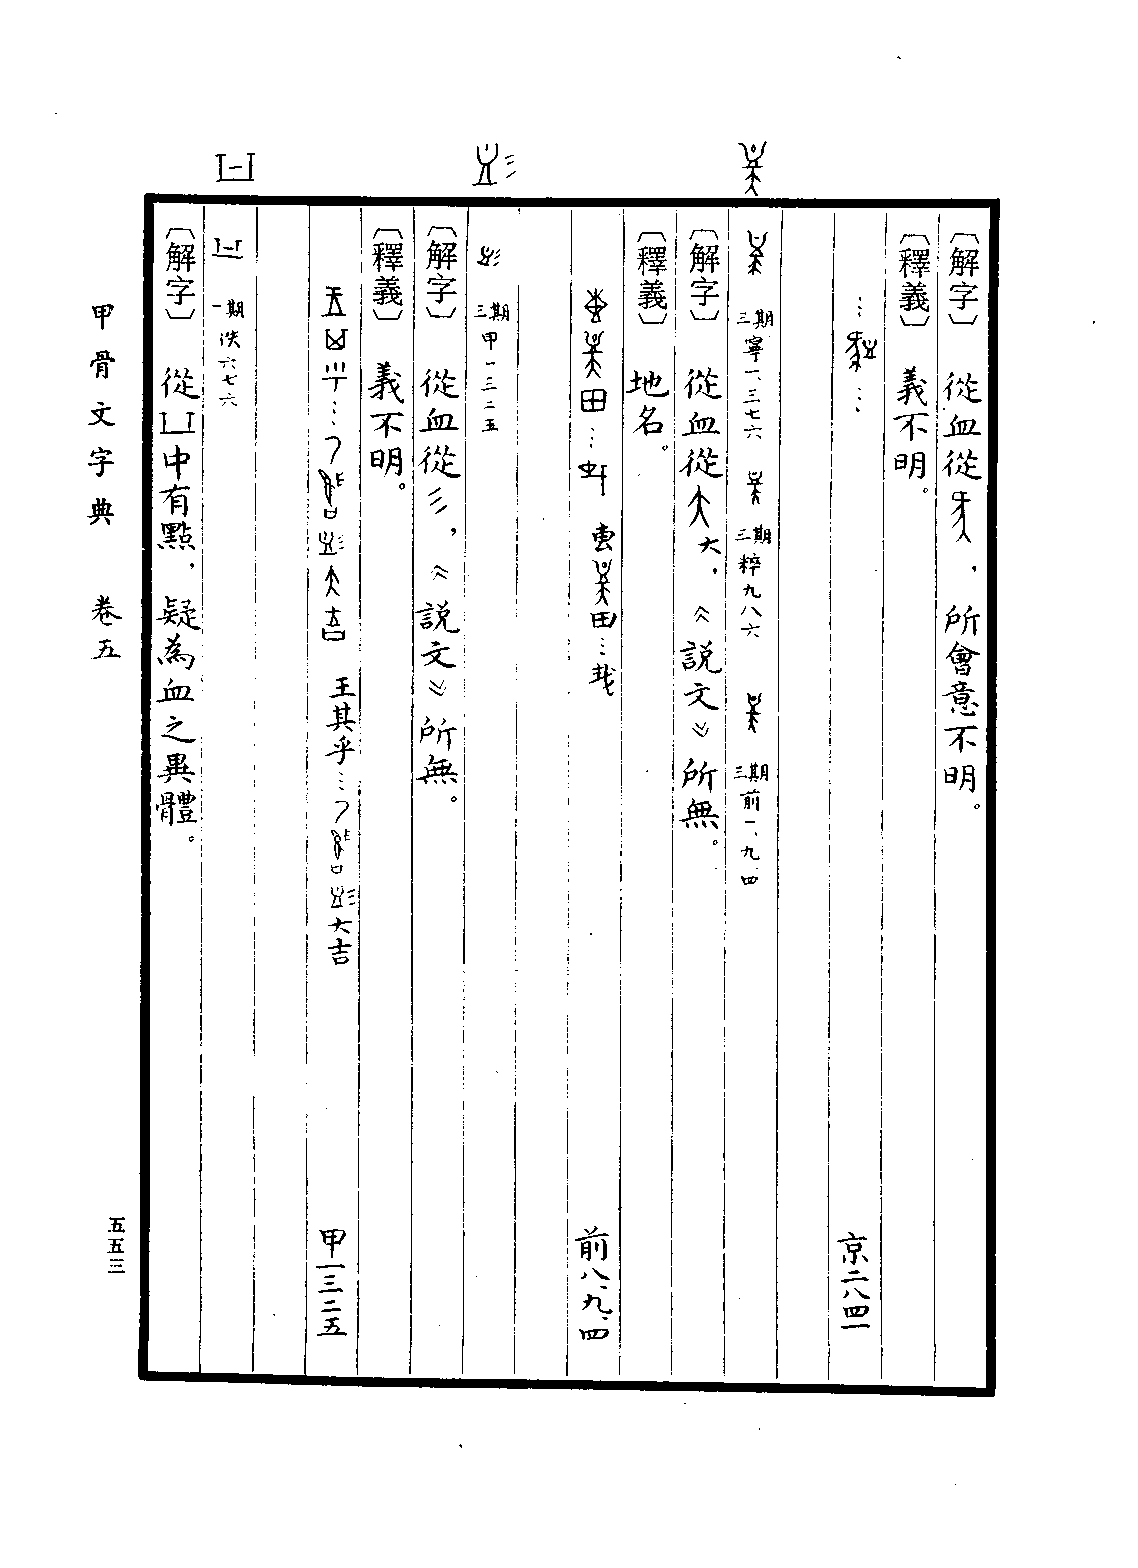 〔解字〕 從血從，所會意不明。
〔釋義〕 義不明。
…… 京二八四一
三期 寧一、三七六 三期 粹九八六 三期 前一、九、四
〔解字〕 從血從大，《說文》所無。
〔釋義〕 地名。
田… 叀田… 前八、九、四
三期 甲一三二五
〔解字〕 從血從彡，《說文》所無。
〔釋義〕 義不明。
王其乎…大吉 甲一三二五
一期 佚六七六
〔解字〕 從凵中有點，疑為血之異體。
甲骨文字典 卷五
五五三